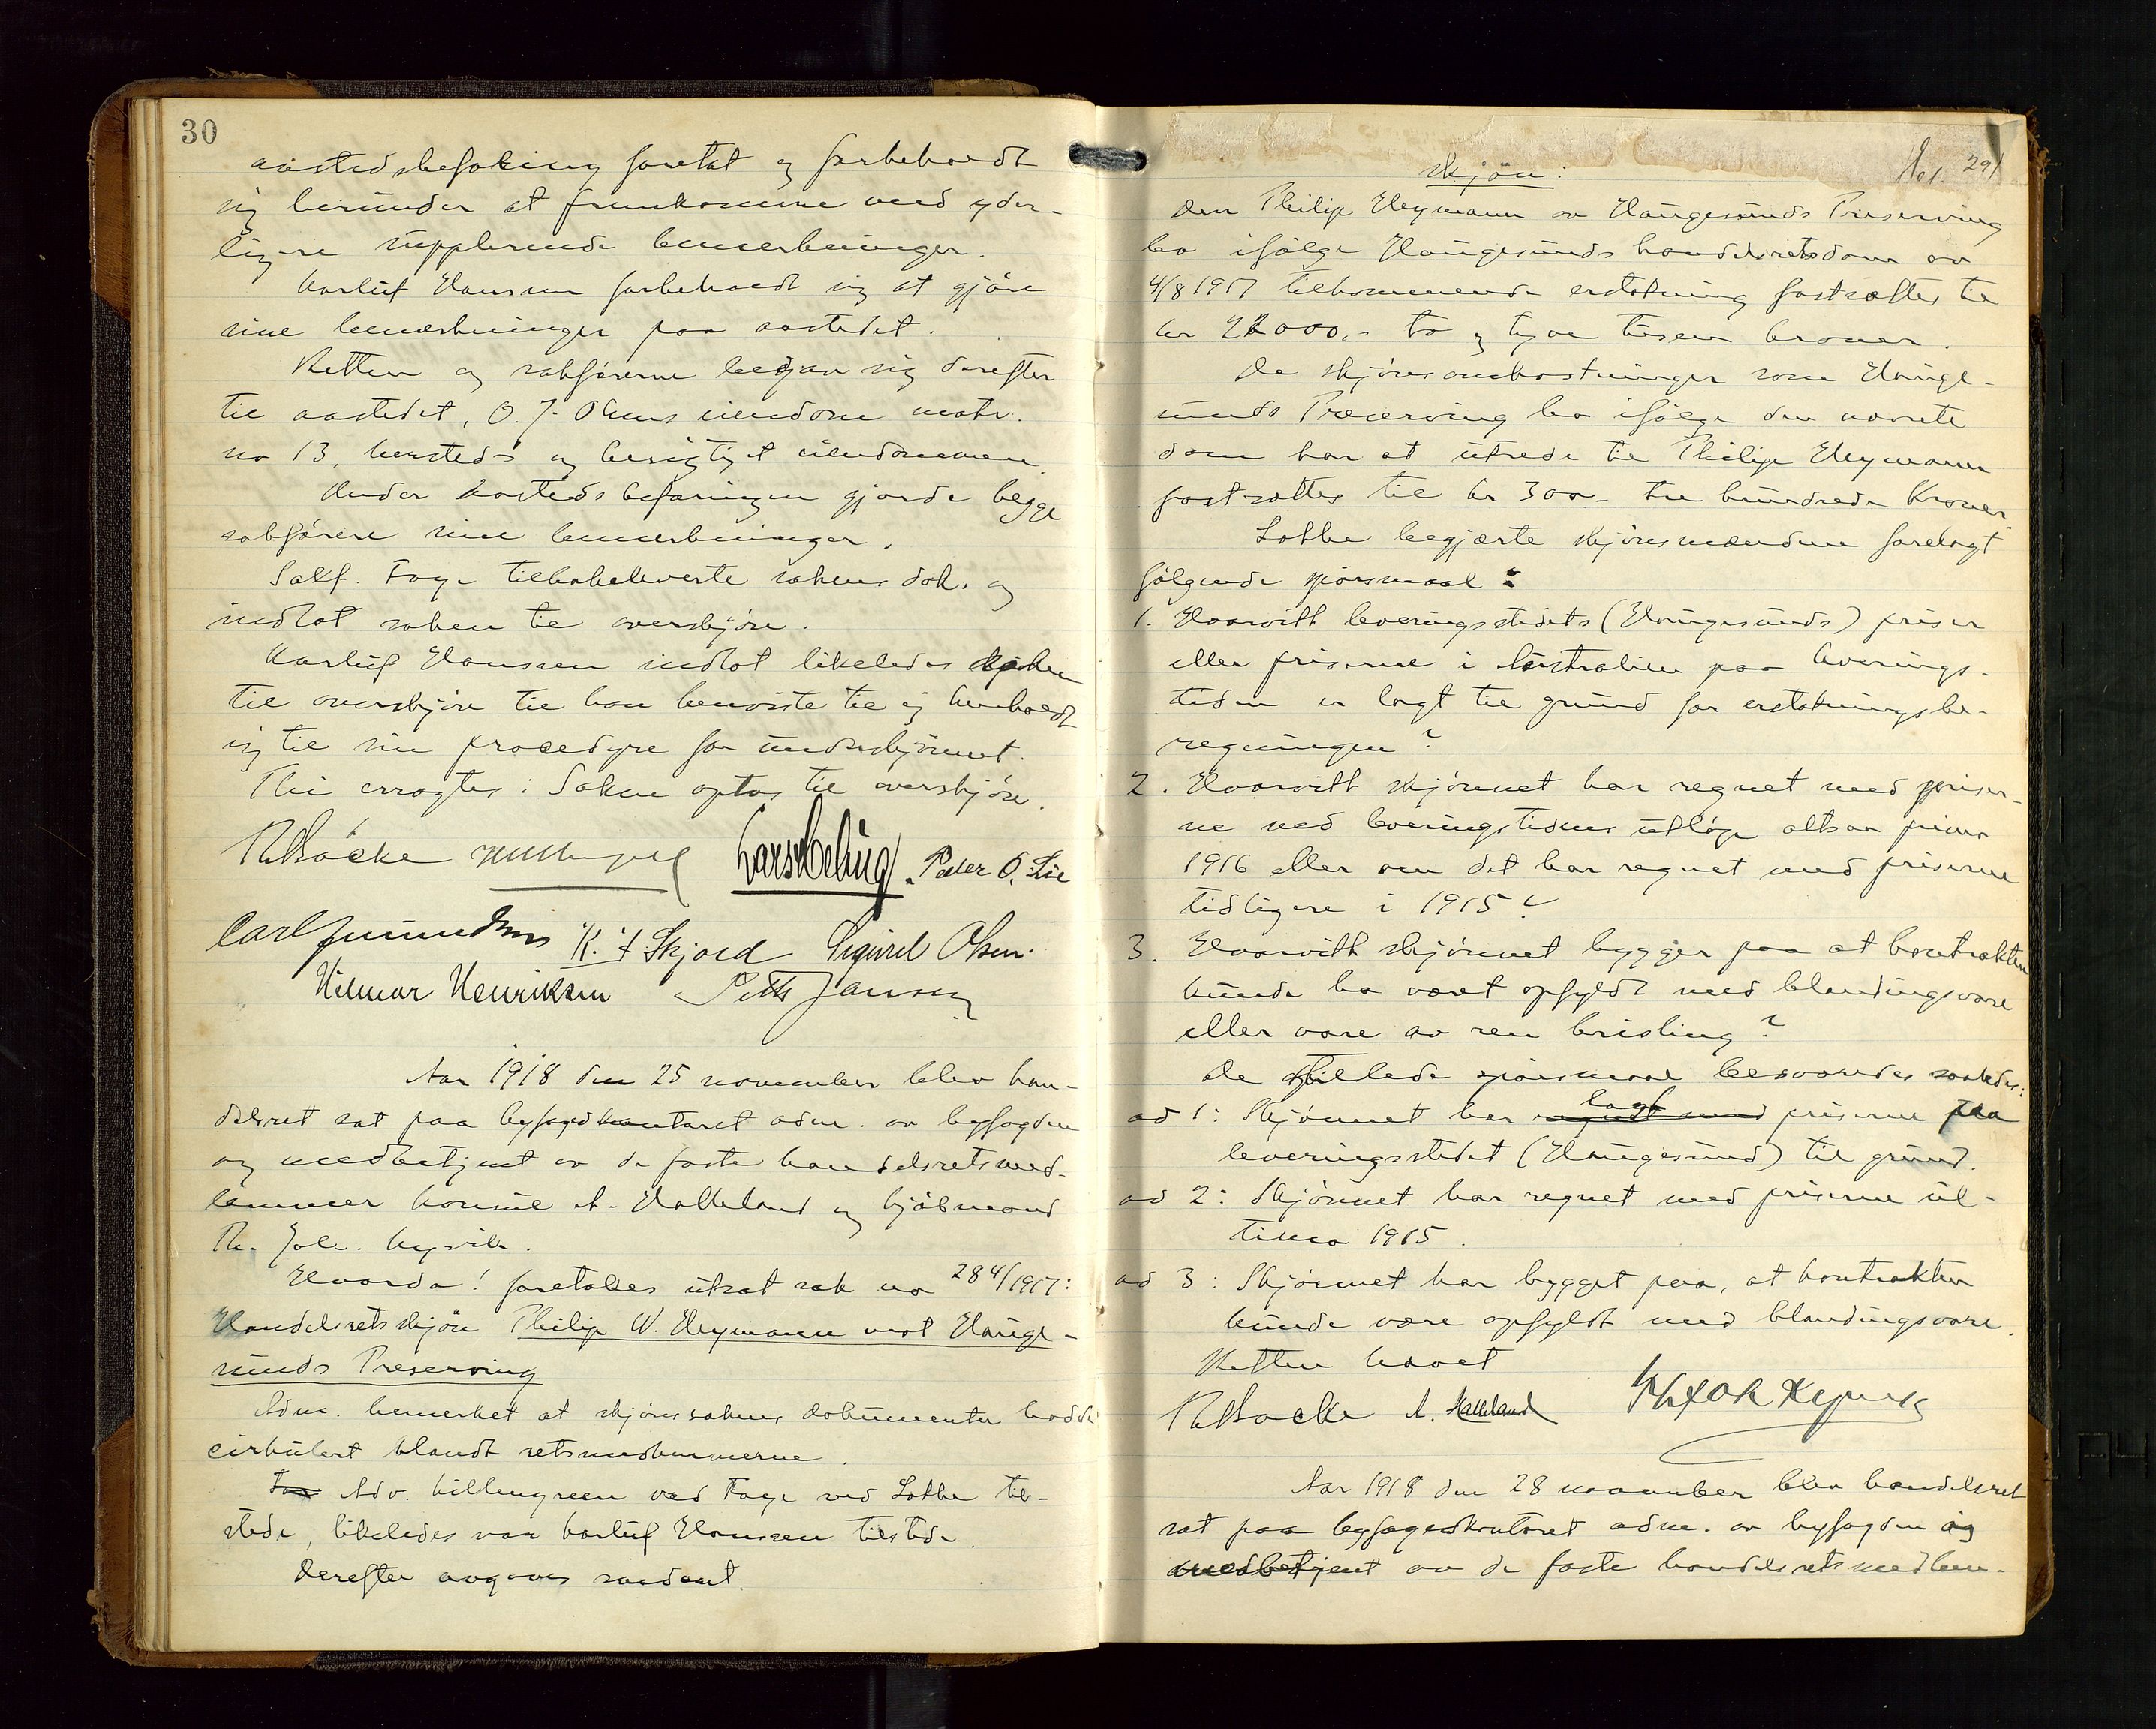 30
aastedsbefaring foretat og forbeholdt
sig herunder at fremkomme med yder-
ligere supplerende bemerkninger.
Karluf Hanssen forbeholdt sig at gjöre
sine bemerkninger paa aastedet.
Retten og sakförerne begav sig derefter
til aastedet, O. J. Olsens eiendom matr.
no 13, hersteds og besigtiget eiendommen.
Under aastedsbefaringen gjorde begge
sakförere sine bemerkninger.
Sakf. Fage tilbakeleverte sakens dok. og
indlot saken til overskjön.
Karluf Hanssen indlot likeledes saken
til overskjön til han henviste til og henholdt
sig til sin procedyre for underskjönnet.
Thi eragtes: Saken optas til overskjön.
RBäcke Lars Meling Peder O. Lie
Carl Gumundsen K. Skjold Sigurd Olsen
Hilmar Henriksen Peth Jansen
Aar 1918 den 25 november blev han-
delsret sat paa byfogdkontoret adm. av byfogden
og medbetjent av de faste handelsretsmed-
lemmer konsul A. Halleland og kjöbmand
Th. Joh. Kyvik.
Hvorda! foretokes utsat sak no 284/1917:
Handelsretsskjön Philip W. Heymann mot Hauge-
sunds Preserving
Adm. bemerket at skjönssakens dokumenter hadde
cirkulert blandt retsmedlemmerne.
For Adv. Killengreen ved Fage ved Lothe til-
stede, likeledes var Karluf Hanssen tilstede.
Derefter avgaves saadant
skjön:
Den Philip Heymann av Haugesunds Preserving
bo ifölge Haugesunds handelsretsdom av
4/8 1917 tilkommende erstatning fastsættes til
kr 22000,- to og tyve tusen kroner.
De skjönsomkostninger som Hauge-
sunds Preserving bo ifölge den nævnte
dom har at utrede til Philip Heymann
fastsættes til kr 300- tre hundrede kroner.
Lothe begjærte skjönsmændene forelagt
fölgende spörsmaal:
1. Hvorvidt leveringsstedets (Haugesunds) priser
eller priserne i Australien paa leverings-
tiden er lagt til grund for erstatningsbe-
regningen?
2. Hvorvidt skjönnet har regnet med priser-
ne ved leveringstidens utlöp altsaa primo
1916 eller om det har regnet med priserne
tidligere i 1915?
3. Hvorvidt skjönnet bygger paa at kontrakten
kunde ha været opfyldt med blandingsvare
eller vare av ren brisling?
De stillede spörsmaal besvaredes saaledes:
ad 1: Skjönnet har regnet med lagt priserne paa
leveringsstedet (Haugesund) til grund.
ad 2: Skjönnet har regnet med priserne ul-
timo 1915.
ad 3: Skjönnet har bygget paa, at kontrakten
kunde være opfyldt med blandingsvare.
Retten hævet
RBäcke A. Halleland Th Joh Kyvik
Aar 1918 den 28 november blev handelsret
sat paa byfogedkontoret adm. av byfogden og
medbetjent av de faste handelsretsmedlem-